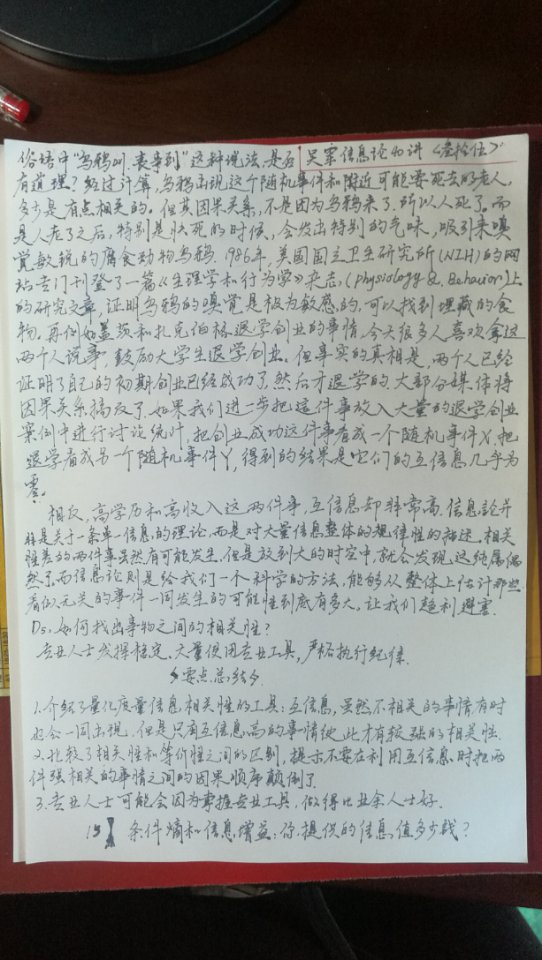 俗语中“乌鸦叫,丧事到”这种说法,是否 吴军信息论40讲《叁拾伍》
有道理?经过计算,乌鸦出现这个随机事件和附近可能要死去的老人,
多少是有点相关的。但其因果关系,不是因为乌鸦来了,所以人死了,而
是人老了之后,特别是快死的时候,会发出特别的气味,吸引来嗅
觉敏锐的腐食动物乌鸦。1986年,美国国立卫生研究所(NIH)的网
站专门刊登了一篇《生理学和行为学》杂志,(physiology & Behavior)上
的研究文章,证明乌鸦的嗅觉是极为敏感的,可以找到埋藏的食
物。再例如盖茨和扎克伯格退学创业的事情,今天很多人喜欢拿这
两个人说事,鼓励大学生退学创业。但事实的真相是,两个人已经
证明了自己的初期创业已经成功了,然后才退学的,大部分媒体将
因果关系搞反了,如果我们进一步把这件事放入大量的退学创业
案例中进行讨论统计,把创业成功这件事看成一个随机事件X,把
退学看成另一个随机事件Y,得到的结果是它们的互信息几乎为
零。
相反,高学历和高收入这两件事,互信息却非常高。信息论并
非是关于一条单一信息的理论,而是对大量信息整体的规律性的描述,相关
性差的两件事虽然有可能发生,但是放到大的时空中,就会发现,这纯属偶
然了,而信息论则是给我们一个科学的方法,能够从整体上估计那些
看似无关的事件一同发生的可能性到底有多大,让我们趋利避害.
D5.如何找出事物之间的相关性?
专业人士发挥稳定.大量使用专业工具,严格执行纪律.
要点总结
1.介绍了量化度量信息相关性的工具:互信息,虽然不相关的事情有时
好会一同出现,但是只有互信息高的事情彼此才有较强的相关性.
2.比较了相关性和等价性之间的区别,提示不要在利用互信息时把两
件强相关的事情之间的因果顺序颠倒了.
3.专业人士可能会因为掌握专业工具,做得比业余人士好.
15 条件熵和信息增益:你提供的信息值多少钱?